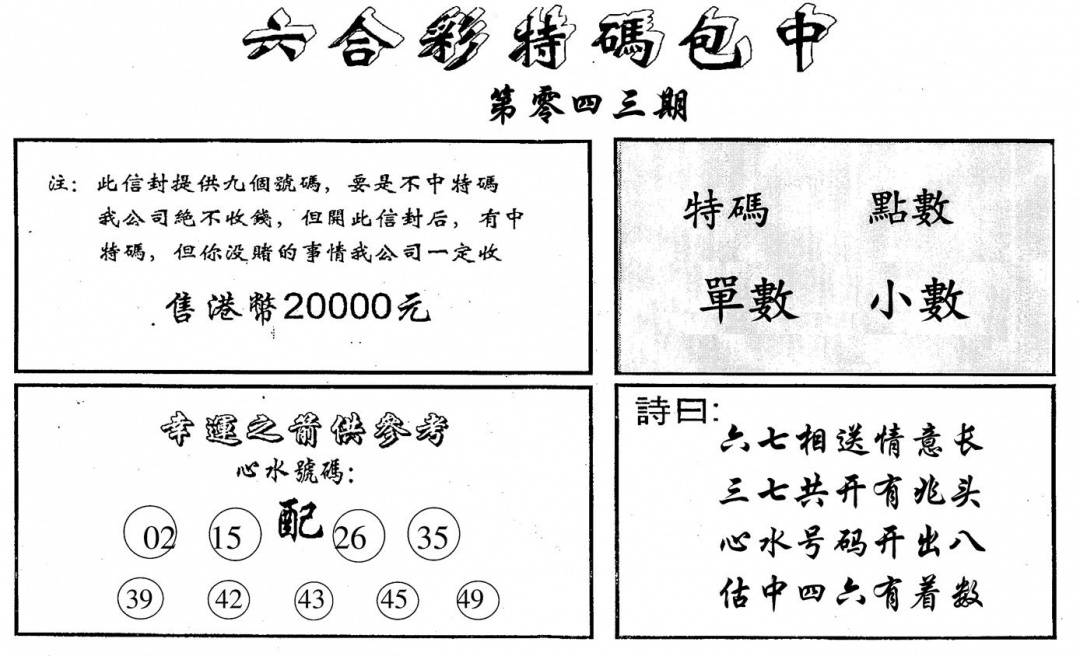 六合彩特碼包中
第零四三期
注：此信封提供九個號碼，要是不中特碼
我公司絕不收錢，但開此信封后，有中
特碼，但你没賭的事情我公司一定收
售港幣20000元
特碼 點數
單數 小數
幸運之箭供參考
心水號碼：
配
02 15 26 35
39 42 43 45 49
詩曰：
六七相送情意长
三七共开有兆头
心水号码开出八
估中四六有着数